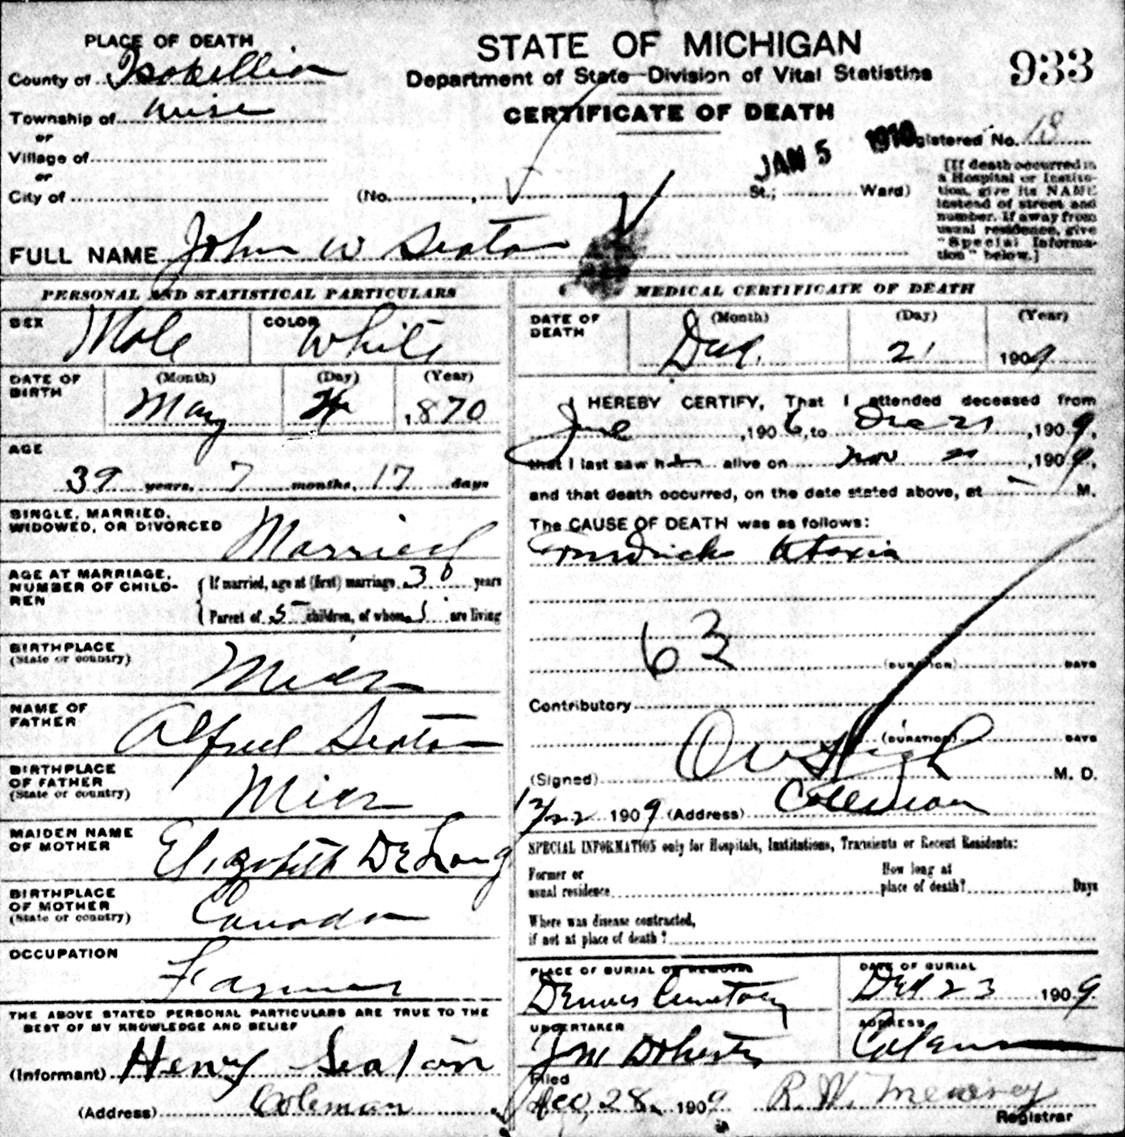 PLACE OF DEATH
County of Isabella
Township of Wise
or
Village of
or
City of
STATE OF MICHIGAN
Department of State—Division of Vital Statistics
CERTIFICATE OF DEATH
933
JAN 5 1910
Registered No. 18
(No. , St.; Ward)
[If death occurred in
a Hospital or Institu-
tion, give its NAME
instead of street and
number. If away from
usual residence, give
"Special Informa-
tion" below.]
FULL NAME John W Seaton
PERSONAL AND STATISTICAL PARTICULARS
SEX Male
COLOR White
DATE OF BIRTH
(Month) May (Day) 4 (Year) 1870
AGE
39 years, 7 months, 17 days
SINGLE, MARRIED,
WIDOWED, OR DIVORCED Married
AGE AT MARRIAGE,
NUMBER OF CHILD-
REN
If married, age at (first) marriage 30 years
Parent of 5 children, of whom 5 are living
BIRTHPLACE
(State or country) Mich
NAME OF
FATHER Alfred Seaton
BIRTHPLACE
OF FATHER
(State or country) Mich
MAIDEN NAME
OF MOTHER Elizabeth DeLong
BIRTHPLACE
OF MOTHER
(State or country) Canada
OCCUPATION
Farmer
THE ABOVE STATED PERSONAL PARTICULARS ARE TRUE TO THE
BEST OF MY KNOWLEDGE AND BELIEF
(Informant) Henry Seaton
(Address) Coleman
MEDICAL CERTIFICATE OF DEATH
DATE OF
DEATH
(Month) Dec. (Day) 21 (Year) 1909
I HEREBY CERTIFY, That I attended deceased from
June, 1906, to Dec 21, 1909,
that I last saw him alive on Nov, 1909,
and that death occurred, on the date stated above, at M.
The CAUSE OF DEATH was as follows:
Ataxia
63
(DURATION) DAYS
Contributory
(DURATION) DAYS
(Signed) O W High M. D.
12/22 1909 (Address) Coleman
SPECIAL INFORMATION only for Hospitals, Institutions, Transients or Recent Residents:
Former or
usual residence
How long at
place of death? Days
Where was disease contracted,
if not at place of death?
PLACE OF BURIAL OR REMOVAL
Denver Cemetery
DATE OF BURIAL
Dec 23 1909
UNDERTAKER
J M Doherty
ADDRESS
Coleman
Filed
Dec, 28, 1909
Registrar